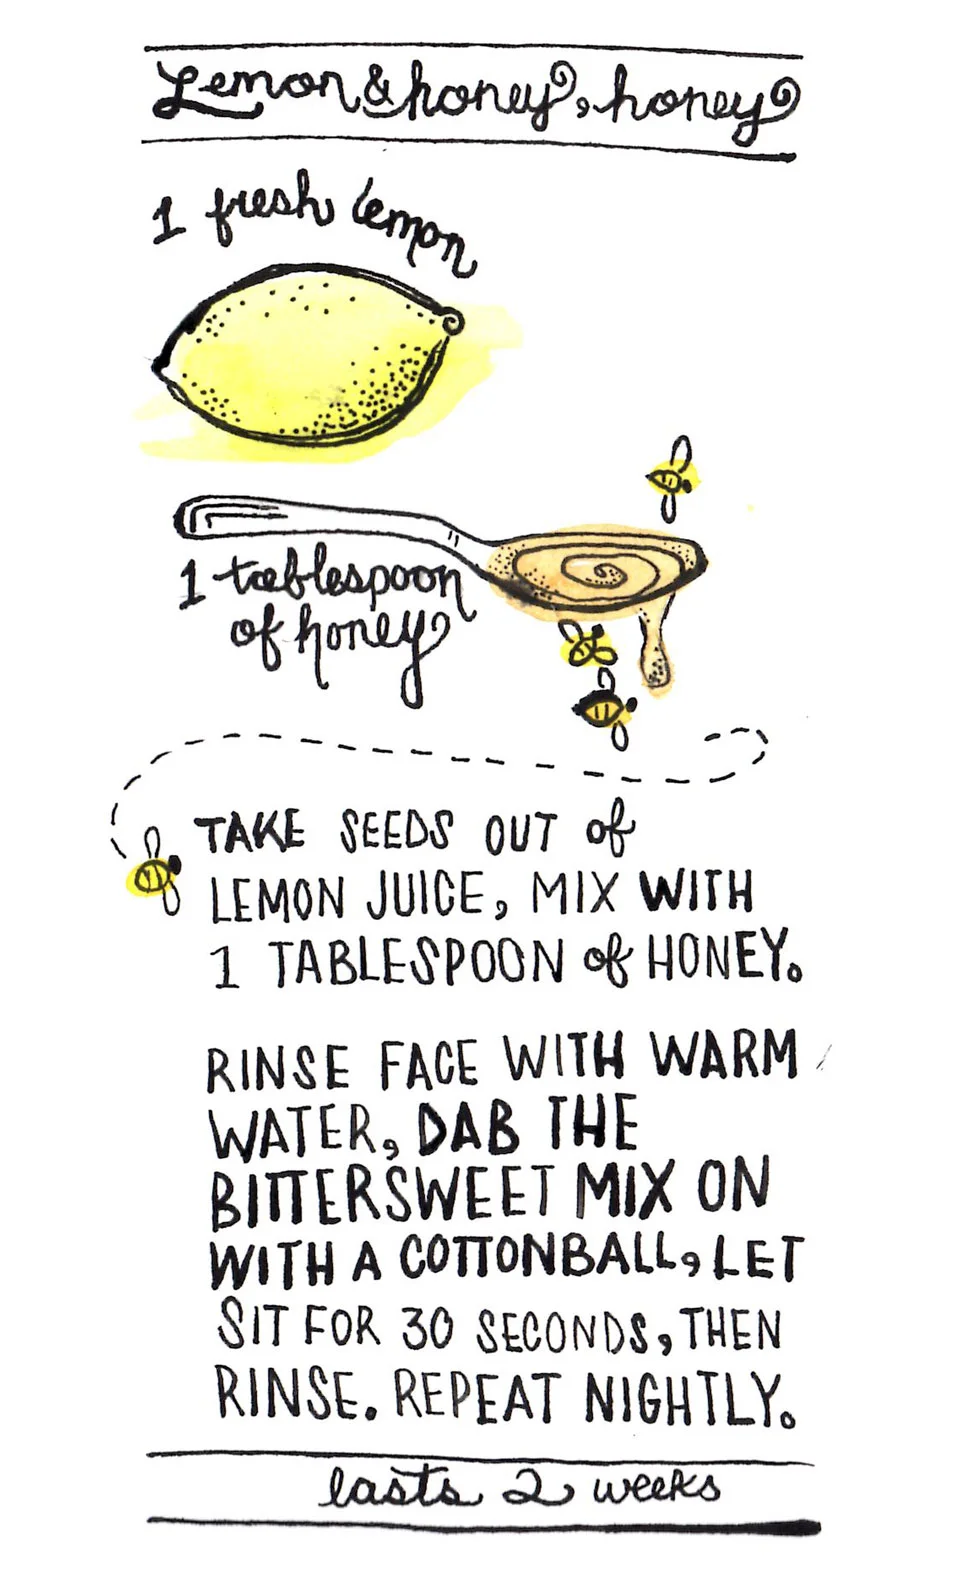 Lemon & honey, honey
1 fresh lemon
1 tablespoon
of honey
TAKE SEEDS OUT of
LEMON JUICE, MIX WITH
1 TABLESPOON of HONEY.
RINSE FACE WITH WARM
WATER, DAB THE
BITTERSWEET MIX ON
WITH A COTTONBALL, LET
SIT FOR 30 SECONDS, THEN
RINSE. REPEAT NIGHTLY.
lasts 2 weeks